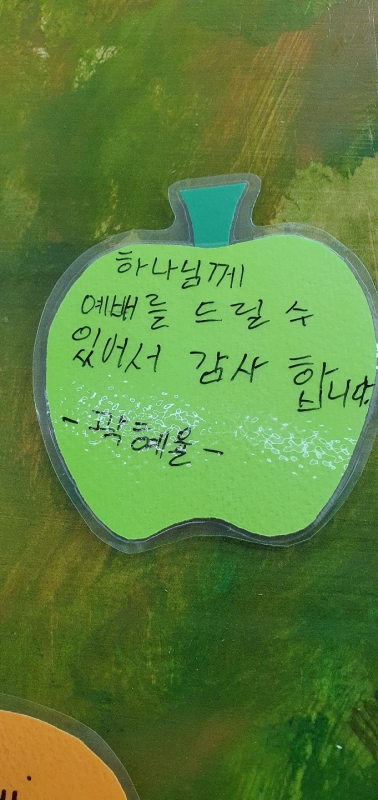 하나님께
예배를 드릴 수
있어서 감사 합니다.
- 곽예율 -